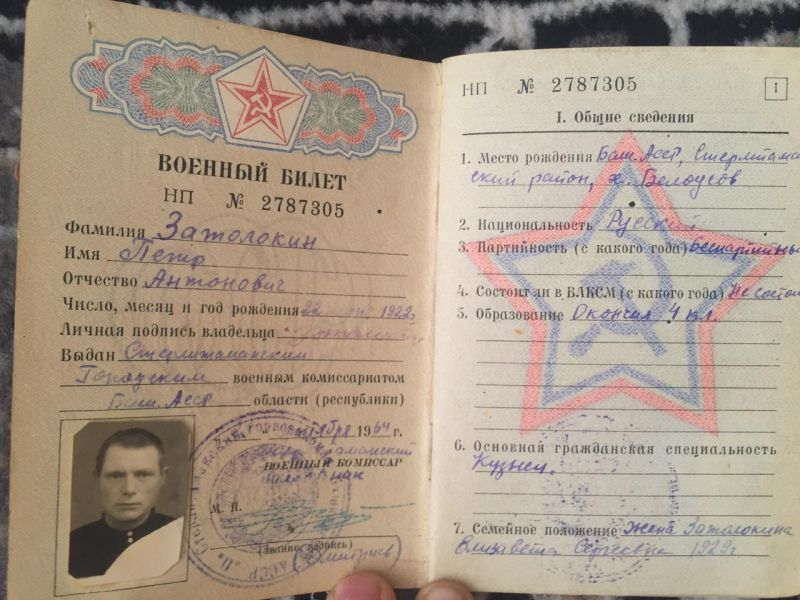 ВОЕННЫЙ БИЛЕТ
НП № 2787305
Фамилия Затолокин
Имя Петр
Отчество Антонович
Число, месяц и год рождения 22 1922г
Личная подпись владельца
Выдан Стерлитаманским
Городским военным комиссариатом
Баш. Асср области (республики)
1964 г.
ВОЕННЫЙ КОМИССАР
М. П.
(Звание, подпись)
(Дмитриев)
НП № 2787305
1
I. Общие сведения
1. Место рождения Баш. Асср, Стерлитама
ский район, х. Белоусов
2. Национальность Русский
3. Партийность (с какого года) беспартийны
4. Состоит ли в ВЛКСМ (с какого года) Не состои
5. Образование Окончил 4 кл.
6. Основная гражданская специальность
Кузнец.
7. Семейное положение жена Затолокина
Елизавета Сергеевна 1929г